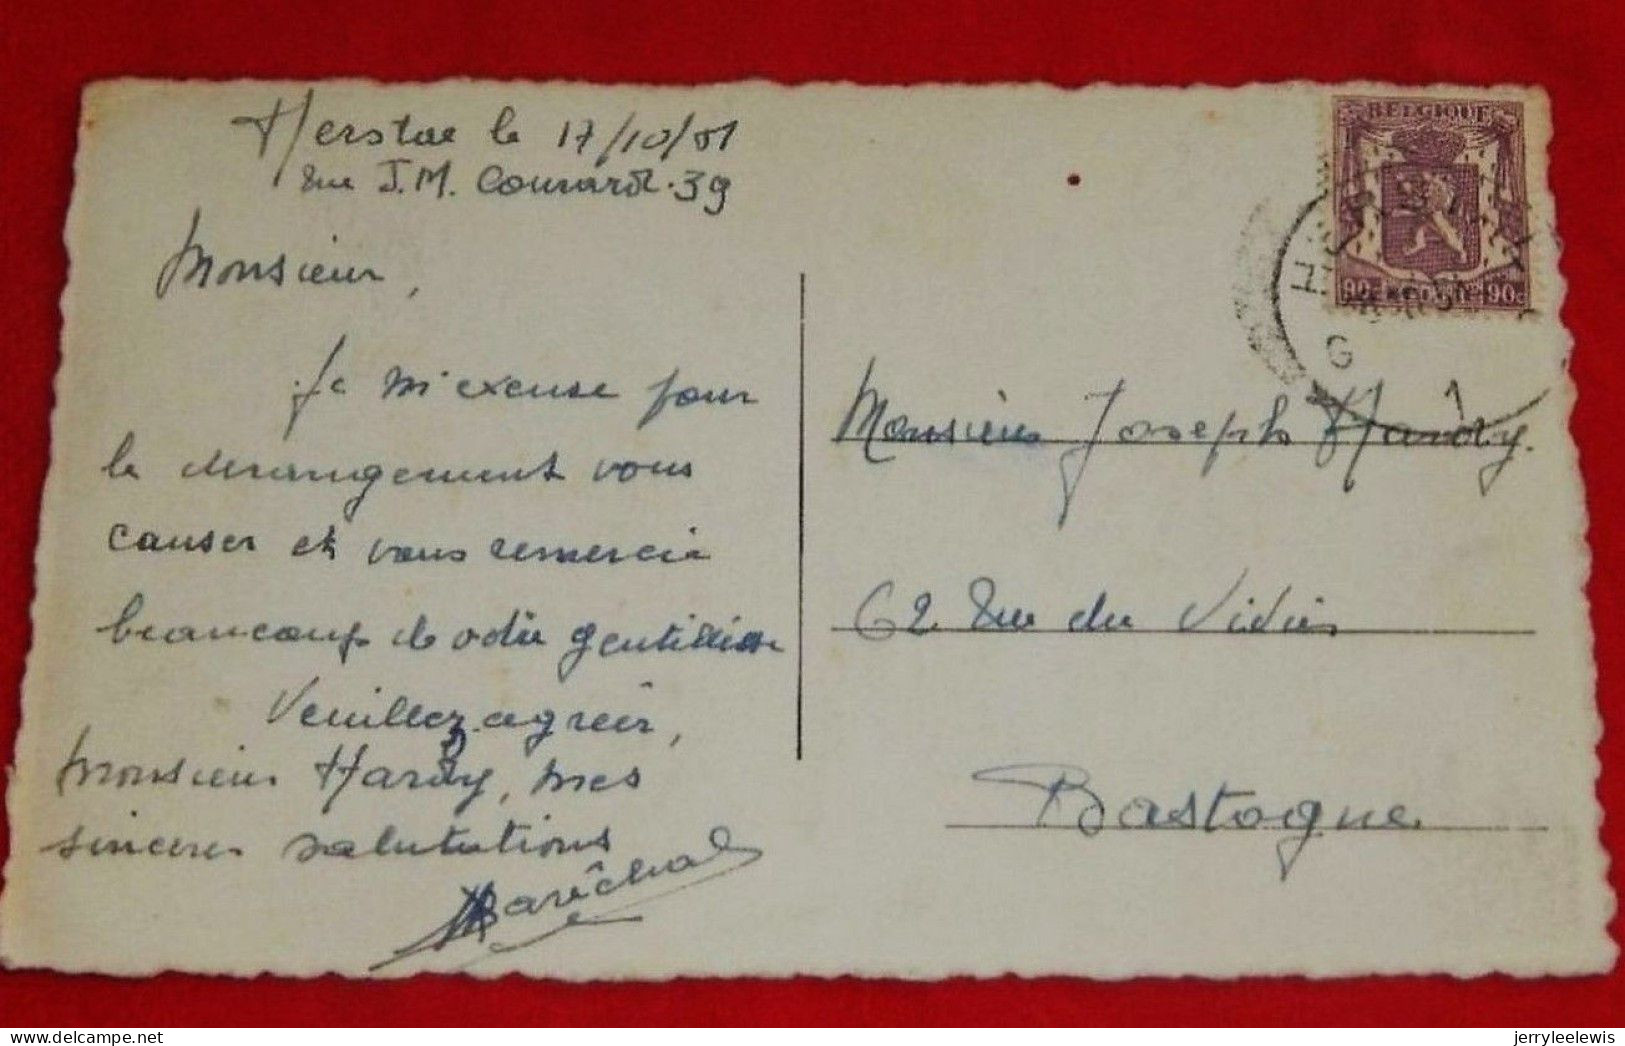 Herstal le 17/10/51
rue J.M. Connard 39
Monsieur,
Je m'excuse pour
le derrangement vous
causer et vous remercie
beaucoup de votre gentillesse
Veuillez agréer,
Monsieur Hardy, mes
sinceres salutations
Maréchal
BELGIQUE
90c BELGIE 90c
HERSTAL
G
1
Monsieur Joseph Hardy.
62 Rue du Vivier
Bastogne
delcampe.net
jerryleelewis